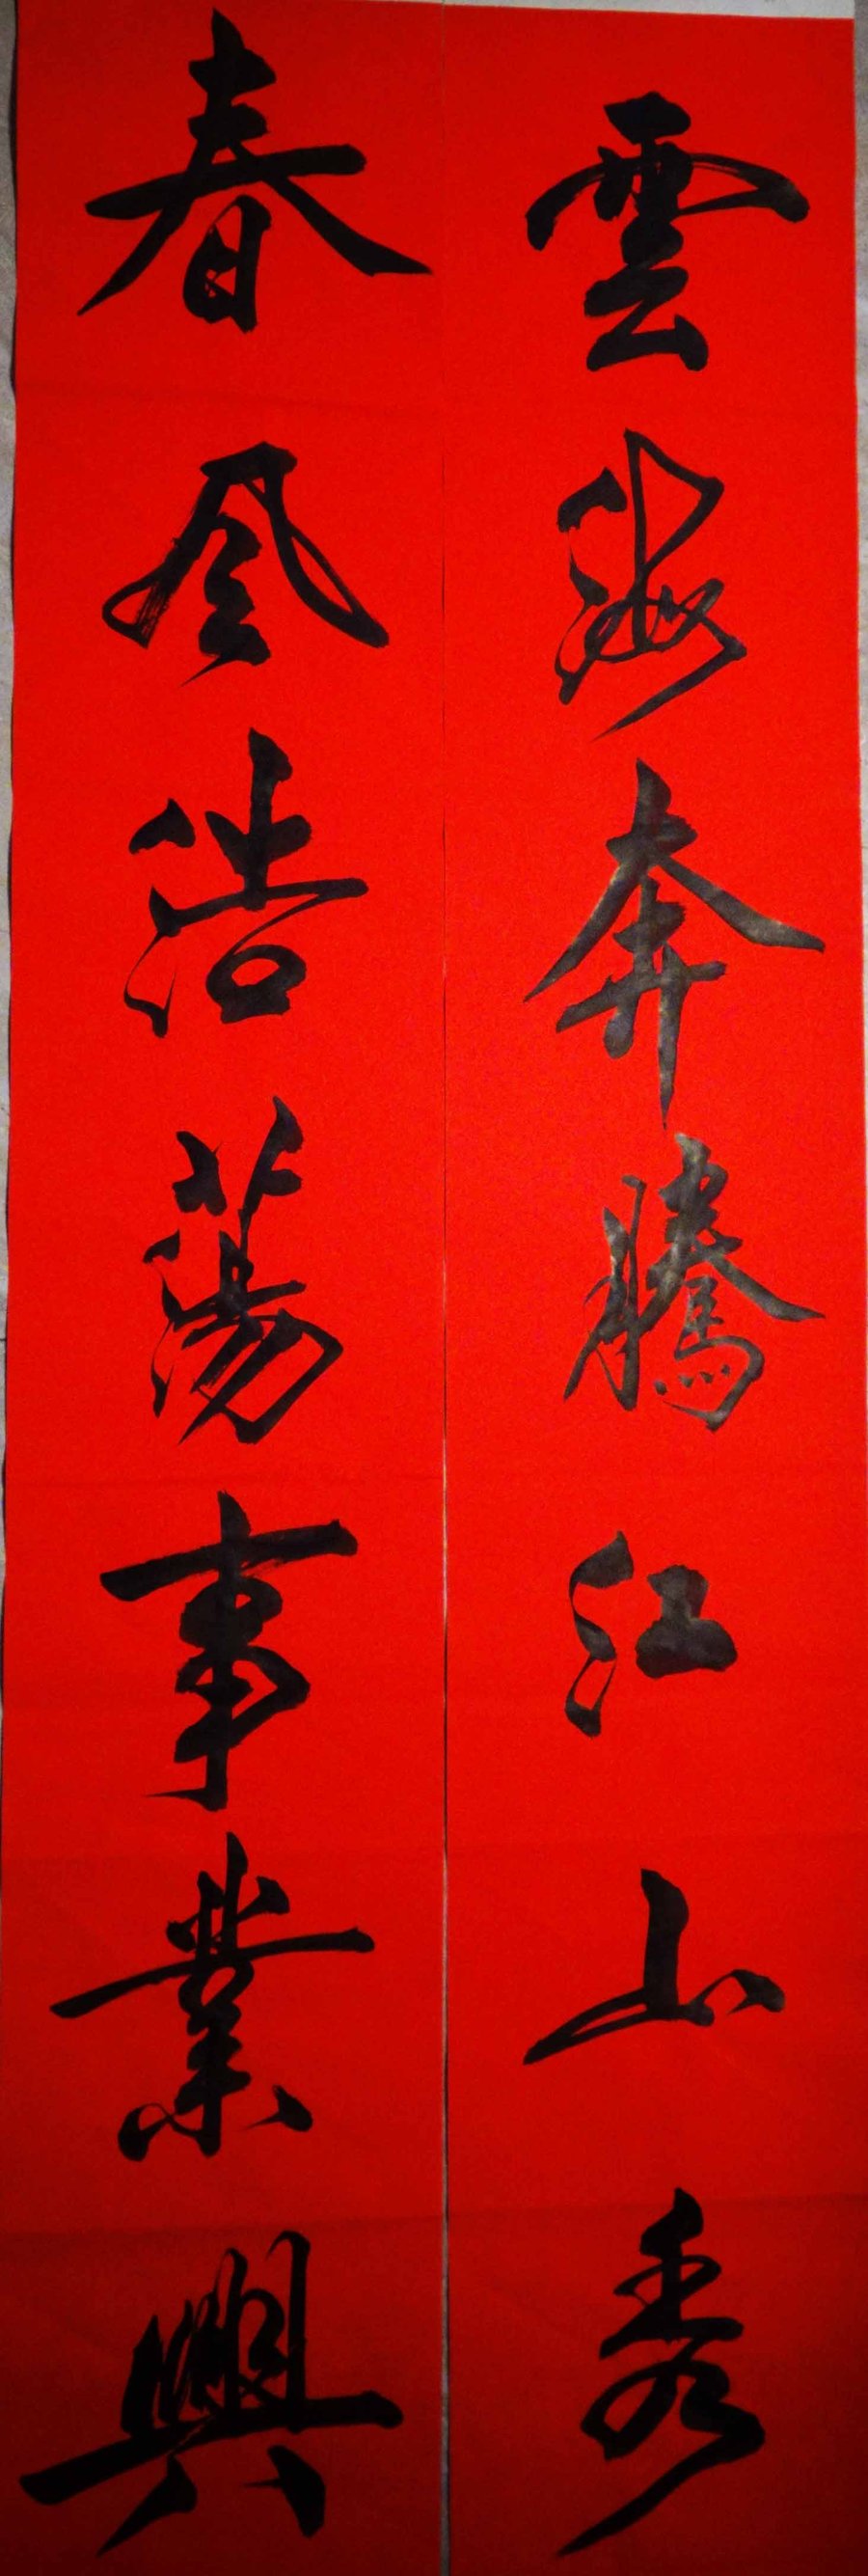 雲海奔騰江山秀
春風浩蕩事業興